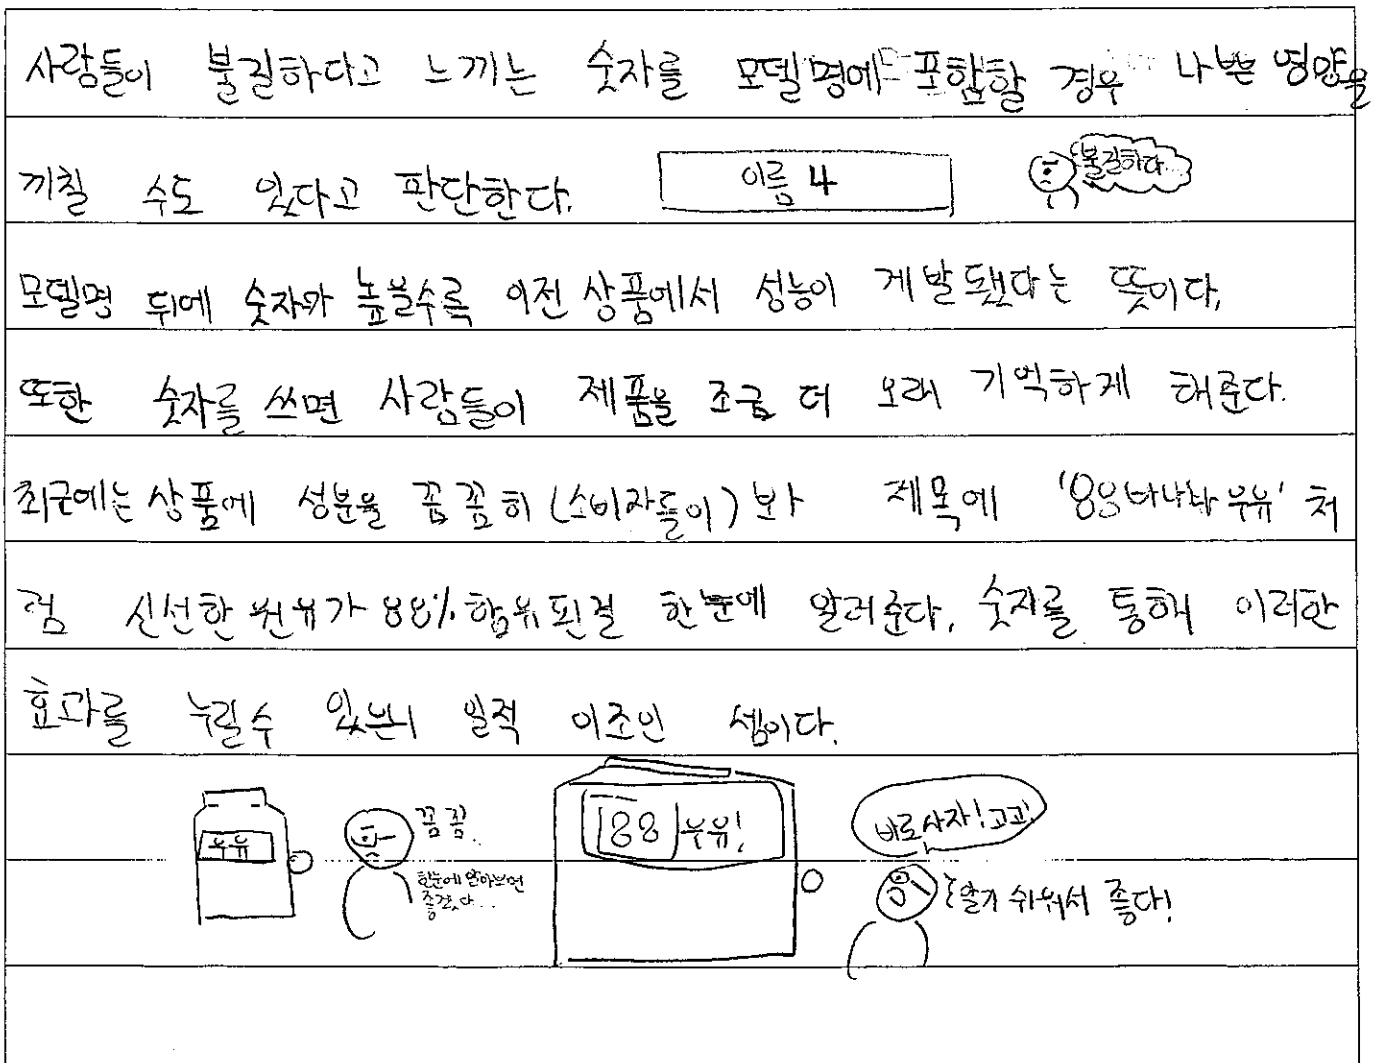 사람들이 불길하다고 느끼는 숫자를 모델명에 포함할 경우 나쁜 영향을
끼칠 수도 있다고 판단한다. 이름 4 불길하다...
모델명 뒤에 숫자와 높을수록 이전 상품에서 성능이 게발됐다는 뜻이다.
또한 숫자를 쓰면 사람들이 제품을 조금 더 오래 기억하게 해준다.
최근에는 상품에 성분을 꼼꼼히 (소비자들이) 봐 제목에 '88바나나 우유' 처
럼 신선한 원유가 88% 함유 된걸 한눈에 알려준다. 숫자를 통해 이러한
효과를 누릴수 있으니 일석 이조인 셈이다.
우유 꼼꼼.. 88 우유! 바로사자! 고고!
한눈에 알아보면
좋겠다... 알기 쉬워서 좋다!